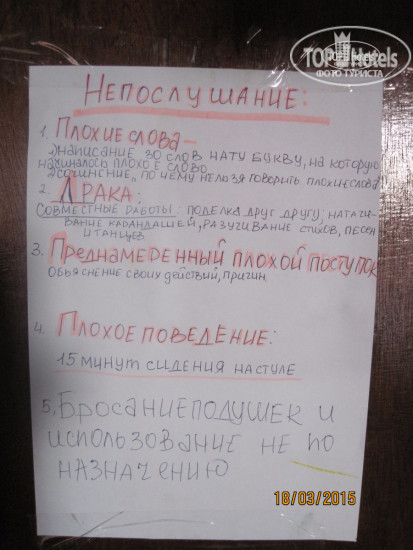 TOP Hotels
ФОТО ТУРИСТА
НЕПОСЛУШАНИЕ:
1. ПЛОХИЕ СЛОВА -
1) НАПИСАНИЕ 30 СЛОВ НА ТУ БУКВУ, НА КОТОРУЮ
НАЧИНАЛОСЬ ПЛОХОЕ СЛОВО
2) СОЧИНЕНИЕ „ПОЧЕМУ НЕЛЬЗЯ ГОВОРИТЬ ПЛОХИЕ СЛОВА
2. ДРАКА:
СОВМЕСТНЫЕ РАБОТЫ: ПОДЕЛКА ДРУГ ДРУГУ; НАТАЧИ-
ВАНИЕ КАРАНДАШЕЙ, РАЗУЧИВАНИЕ СТИХОВ, ПЕСЕН
И ТАНЦЕВ
3. ПРЕДНАМЕРЕННЫЙ ПЛОХОЙ ПОСТУПОК
ОБЪЯСНЕНИЕ СВОИХ ДЕЙСТВИЙ, ПРИЧИН
4. ПЛОХОЕ ПОВЕДЕНИЕ:
15 МИНУТ СИДЕНИЯ НА СТУЛЕ
5. БРОСАНИЕ ПОДУШЕК И
ИСПОЛЬЗОВАНИЕ НЕ ПО
НАЗНАЧЕНИЮ
18/03/2015